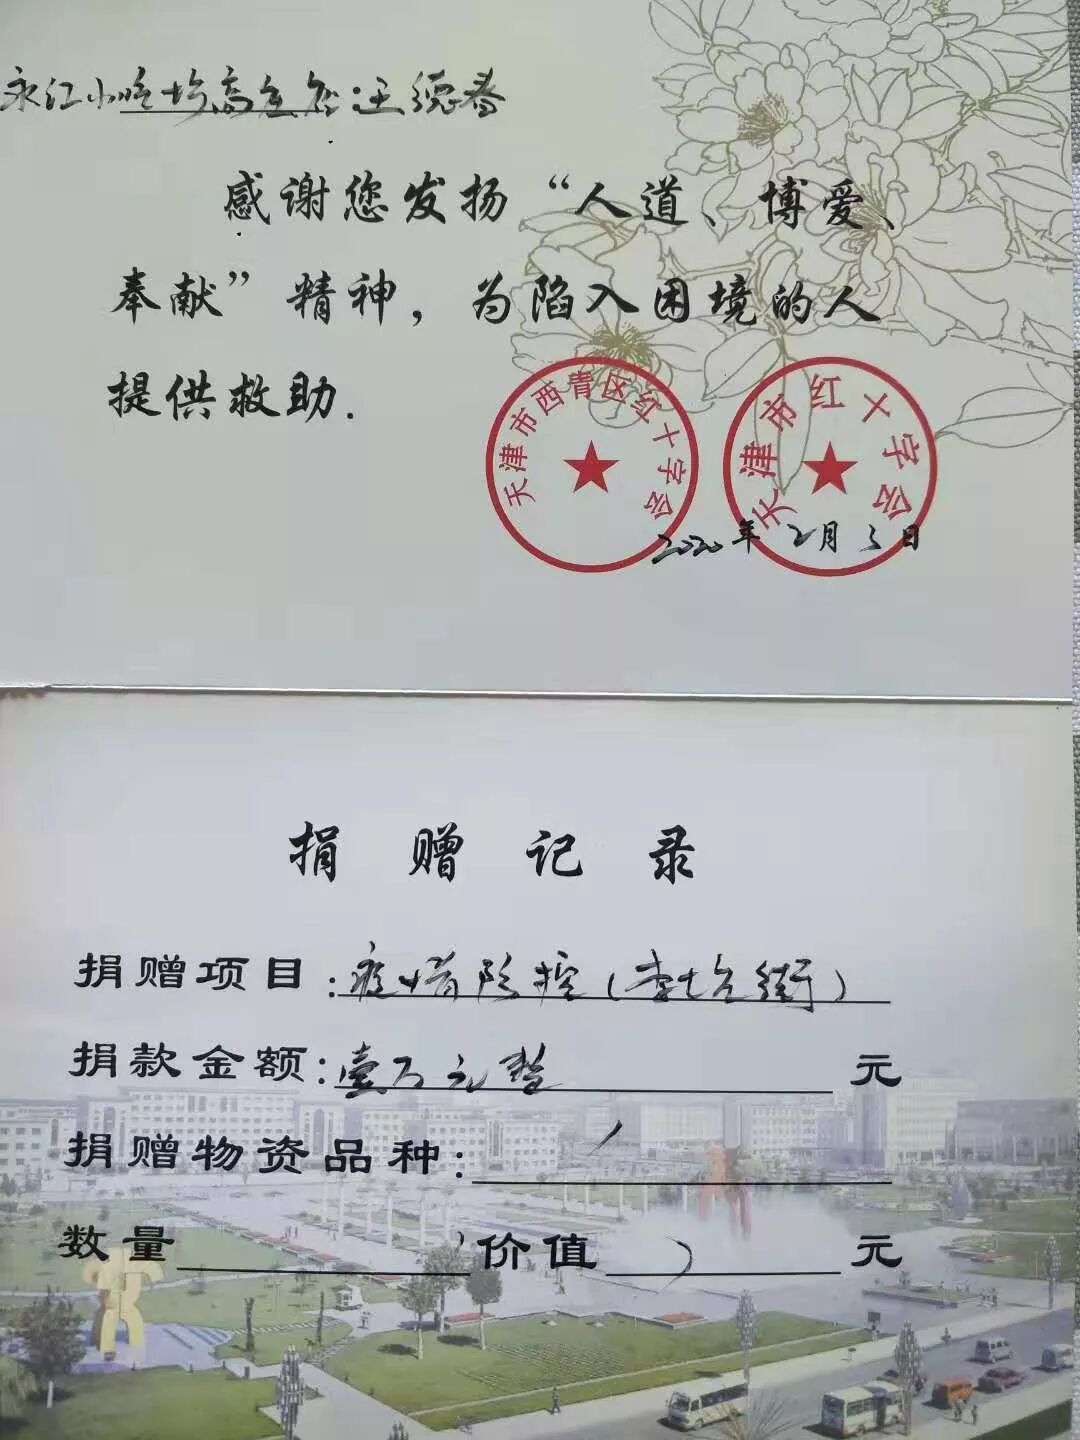 永江小吃坊高主名:王德春
感谢您发扬“人道、博爱、
奉献”精神，为陷入困境的人
提供救助.
天津市西青区红十字会
天津市红十字会
2020年2月3日
捐赠记录
捐赠项目:疫情防控(李七庄街)
捐款金额:壹万元整 元
捐赠物资品种: /
数量 / 价值 / 元